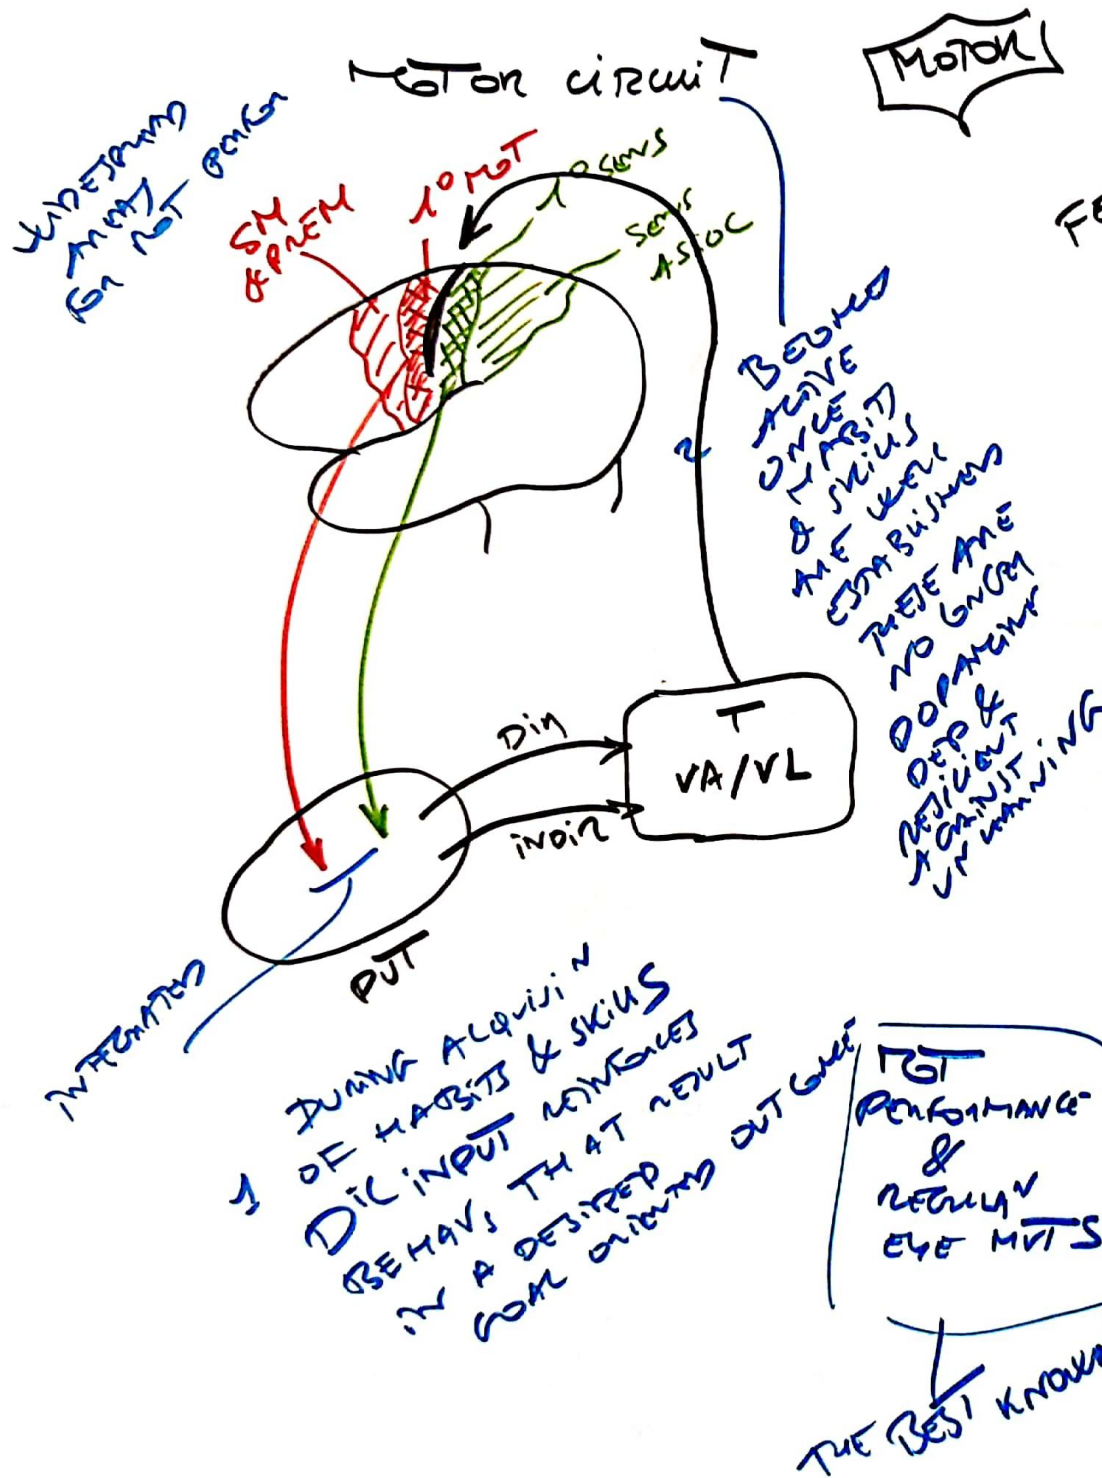 MOTOR CIRCUIT
MOTOR
WIDESPREAD
AREAS
FOR MOT
SM
& PREM
1° MOT
1° SENS
SENS
ASSOC
FE
2
BECOMES
ACTIVE
ONCE
HABITS
& SKILLS
ARE WELL
ESTABLISHED
THESE ARE
NO LONGER
DOPAMINE
DEP &
RESILIENT
AGAINST
UNLEARNING
T
VA/VL
DIR
INDIR
PUT
INTEGRATED
1
DURING ACQUISIN
OF HABITS & SKILLS
INPUT REINFORCES
BEHAVS THAT RESULT
IN A DESIRED
GOAL ORIENTED OUTCOME
MOT
PERFORMANCE
&
REGULAR
EYE MVTS
THE BEST KNOWN